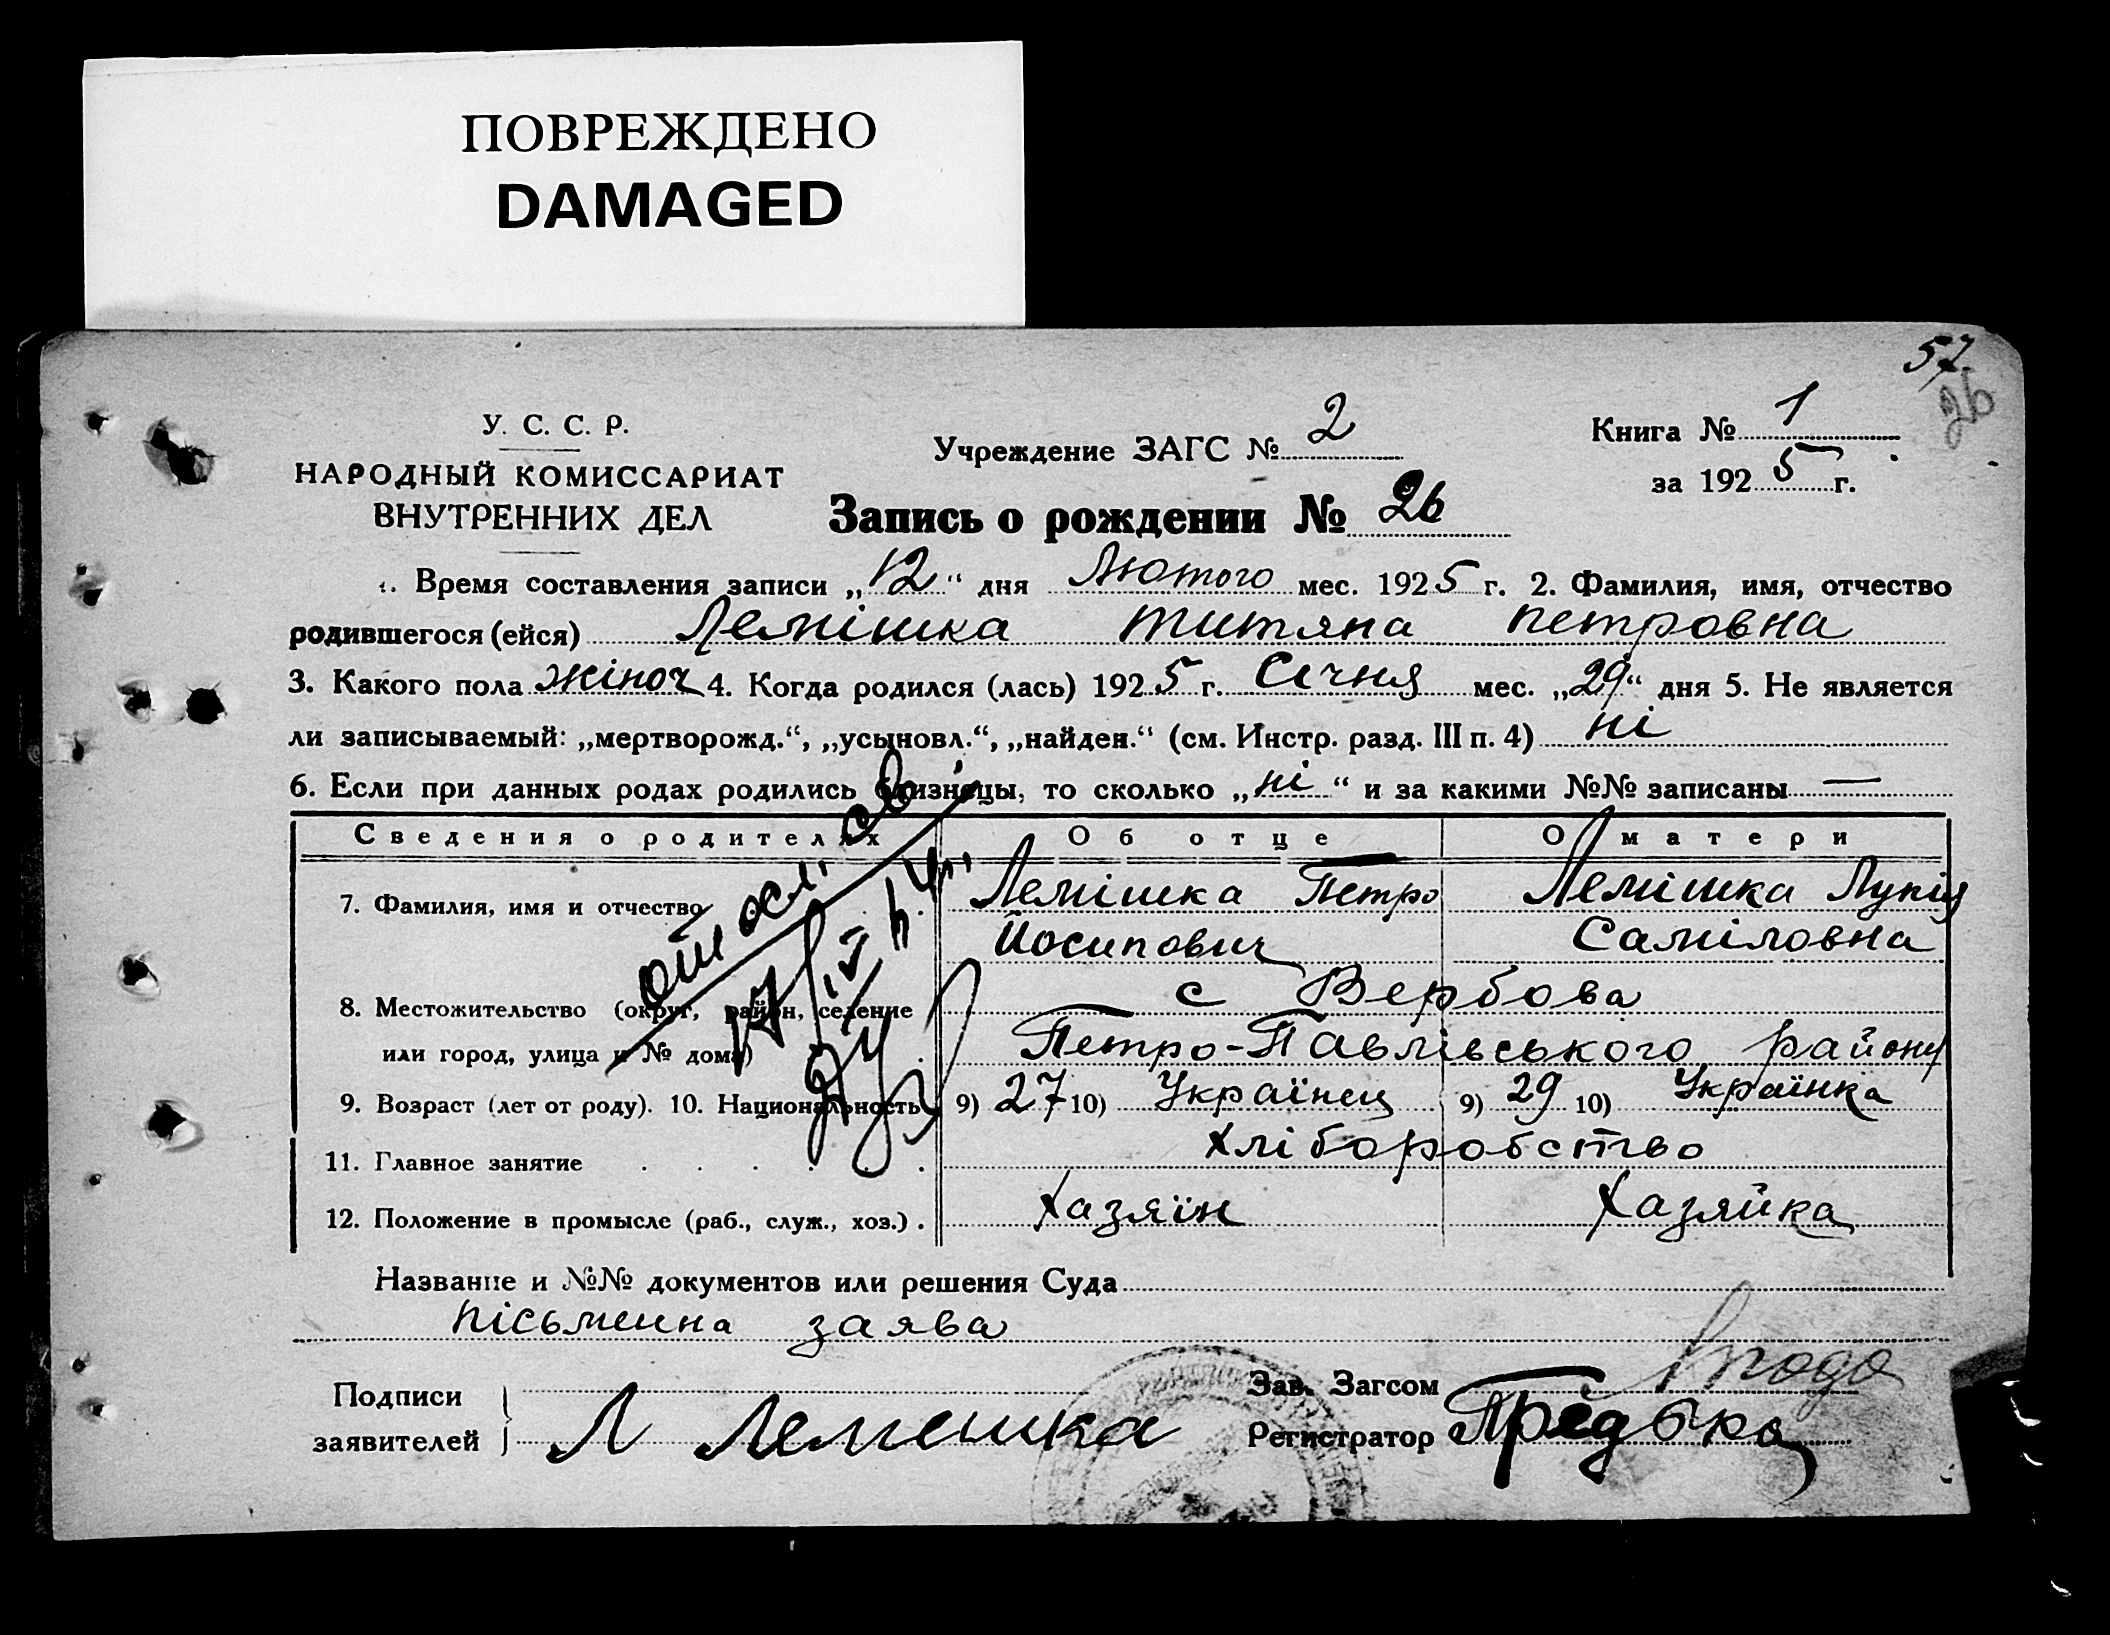 ПОВРЕЖДЕНО
DAMAGED
57.
26
У. С. С. Р.
НАРОДНЫЙ КОМИССАРИАТ
ВНУТРЕННИХ ДЕЛ
Учреждение ЗАГС № 2
Книга № 1
за 1925 г.
Запись о рождении № 26
1. Время составления записи „12“ дня Лютого мес. 1925 г. 2. Фамилия, имя, отчество
родившегося (ейся) Лемішка Титяна Петровна
3. Какого пола жіноч 4. Когда родился (лась) 1925 г. Січня мес. „29“ дня 5. Не является
ли записываемый: „мертворожд.“, „усыновл.“, „найден.“ (см. Инстр. разд. III п. 4) ні
6. Если при данных родах родились близнецы, то сколько „ні“ и за какими №№ записаны —
Сведения о родителях Об отце О матери
7. Фамилия, имя и отчество Лемішка Петро Лемішка Лукія
Йосипович Саміловна
8. Местожительство (округ, район, селение с Вербова
или город, улица и № дома) Петро-Павлівського району
9. Возраст (лет от роду). 10. Национальность 9) 27 10) Українец 9) 29 10) Українка
11. Главное занятие Хліборобство
12. Положение в промысле (раб., служ., хоз.) Хазяїн Хазяйка
Название и №№ документов или решения Суда
пісьменна заява
Подписи
заявителей Л Лемешка
Зав. Загсом
Регистратор